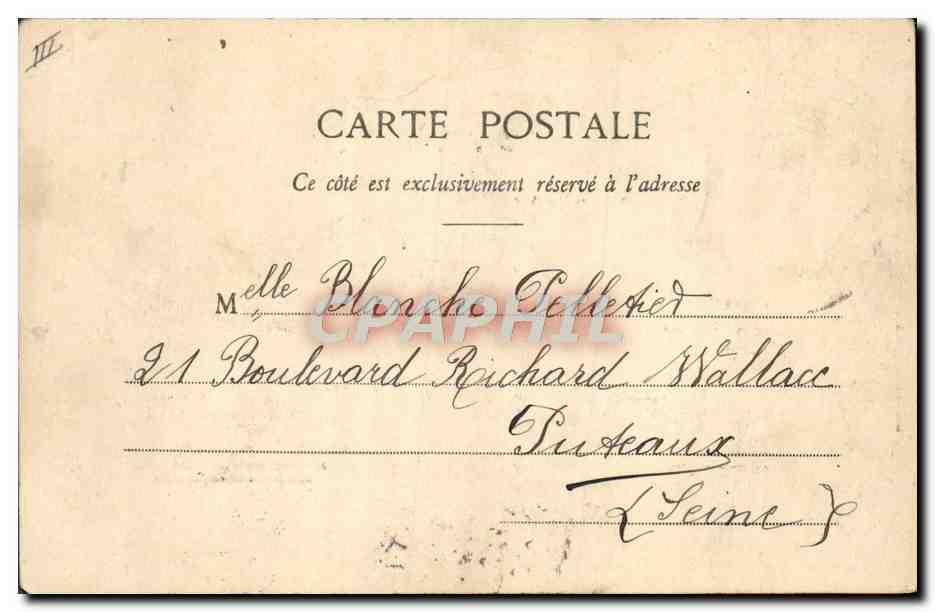 III
CARTE POSTALE
Ce côté est exclusivement réservé à l'adresse
Melle Blanche Pelletier
CPAPHIL
21 Boulevard Richard Wallace
Puteaux
(Seine)